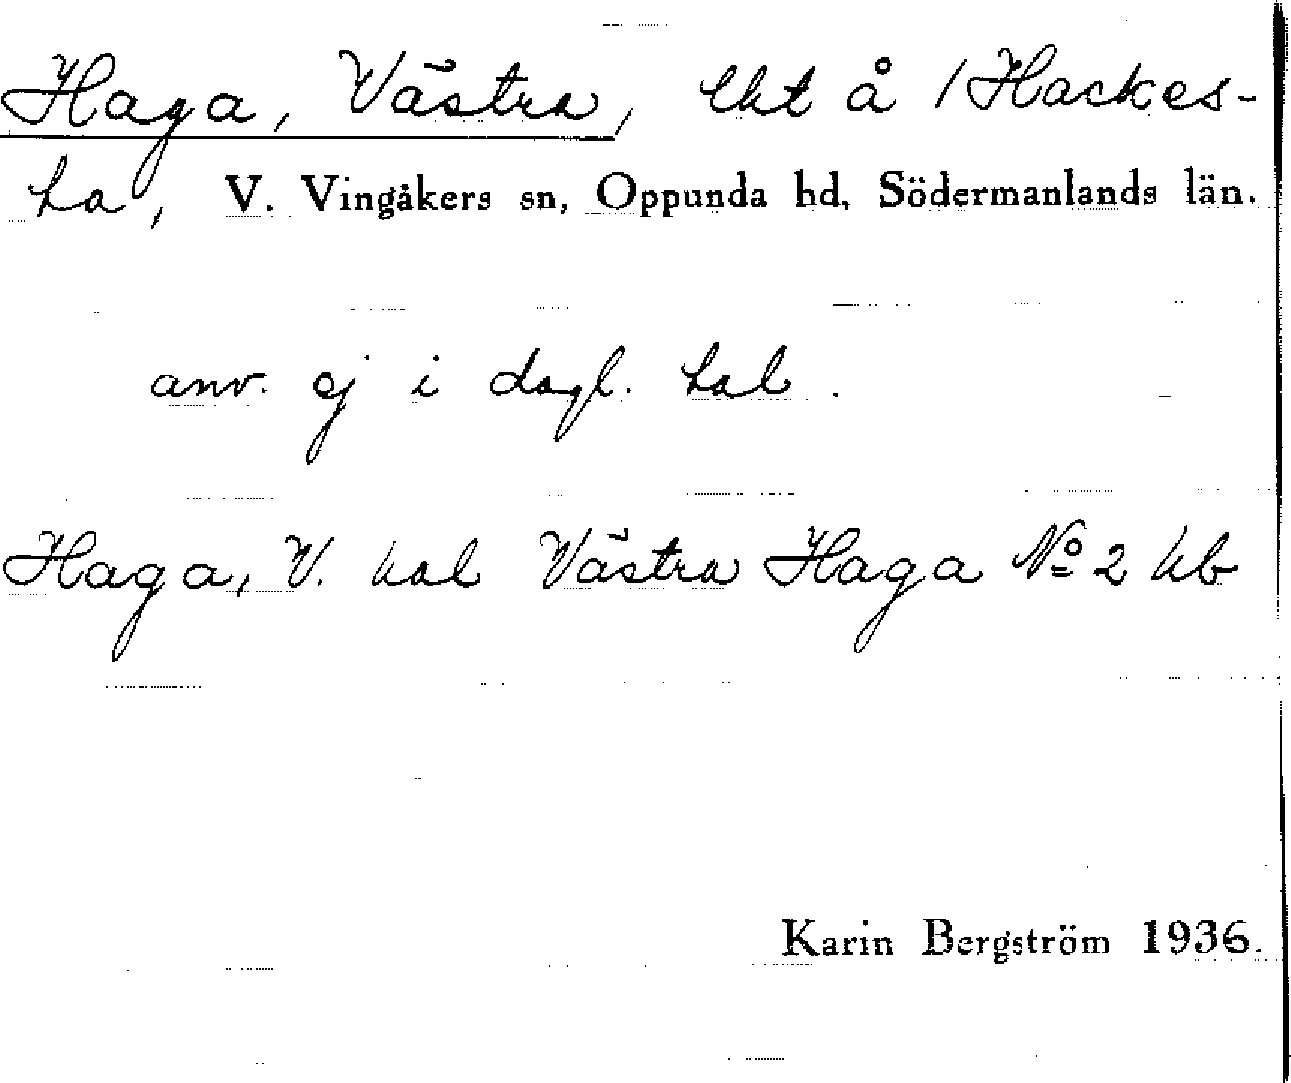 Haga, Västra, lht å /Hackes-
ta, V. Vingåkers sn, Oppunda hd, Södermanlands län.
anv. ej i dagl. tal.
Haga, V. hal Västra Haga No 2 kb
Karin Bergström 1936.